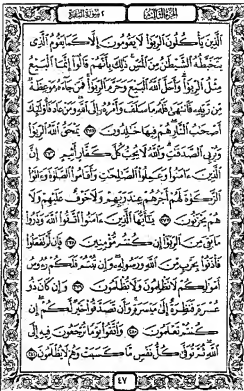 الجزء الثالث سورة البقرة
ٱلَّذِينَ يَأْكُلُونَ ٱلرِّبَوٰا۟ لَا يَقُومُونَ إِلَّا كَمَا يَقُومُ ٱلَّذِى
يَتَخَبَّطُهُ ٱلشَّيْطَٰنُ مِنَ ٱلْمَسِّ ذَٰلِكَ بِأَنَّهُمْ قَالُوٓا۟ إِنَّمَا ٱلْبَيْعُ
مِثْلُ ٱلرِّبَوٰا۟ وَأَحَلَّ ٱللَّهُ ٱلْبَيْعَ وَحَرَّمَ ٱلرِّبَوٰا۟ فَمَن جَآءَهُۥ مَوْعِظَةٌ
مِّن رَّبِّهِۦ فَٱنتَهَىٰ فَلَهُۥ مَا سَلَفَ وَأَمْرُهُۥٓ إِلَى ٱللَّهِ وَمَنْ عَادَ فَأُو۟لَٰٓئِكَ
أَصْحَٰبُ ٱلنَّارِ هُمْ فِيهَا خَٰلِدُونَ ٢٧٥ يَمْحَقُ ٱللَّهُ ٱلرِّبَوٰا۟
وَيُرْبِى ٱلصَّدَقَٰتِ وَٱللَّهُ لَا يُحِبُّ كُلَّ كَفَّارٍ أَثِيمٍ ٢٧٦ إِنَّ
ٱلَّذِينَ ءَامَنُوا۟ وَعَمِلُوا۟ ٱلصَّٰلِحَٰتِ وَأَقَامُوا۟ ٱلصَّلَوٰةَ وَءَاتَوُا۟
ٱلزَّكَوٰةَ لَهُمْ أَجْرُهُمْ عِندَ رَبِّهِمْ وَلَا خَوْفٌ عَلَيْهِمْ وَلَا
هُمْ يَحْزَنُونَ ٢٧٧ يَٰٓأَيُّهَا ٱلَّذِينَ ءَامَنُوا۟ ٱتَّقُوا۟ ٱللَّهَ وَذَرُوا۟
مَا بَقِىَ مِنَ ٱلرِّبَوٰٓا۟ إِن كُنتُم مُّؤْمِنِينَ ٢٧٨ فَإِن لَّمْ تَفْعَلُوا۟
فَأْذَنُوا۟ بِحَرْبٍ مِّنَ ٱللَّهِ وَرَسُولِهِۦ وَإِن تُبْتُمْ فَلَكُمْ رُءُوسُ
أَمْوَٰلِكُمْ لَا تَظْلِمُونَ وَلَا تُظْلَمُونَ ٢٧٩ وَإِن كَانَ ذُو
عُسْرَةٍ فَنَظِرَةٌ إِلَىٰ مَيْسَرَةٍ وَأَن تَصَدَّقُوا۟ خَيْرٌ لَّكُمْ إِن
كُنتُمْ تَعْلَمُونَ ٢٨٠ وَٱتَّقُوا۟ يَوْمًا تُرْجَعُونَ فِيهِ إِلَى
ٱللَّهِ ثُمَّ تُوَفَّىٰ كُلُّ نَفْسٍ مَّا كَسَبَتْ وَهُمْ لَا يُظْلَمُونَ ٢٨١
٤٧